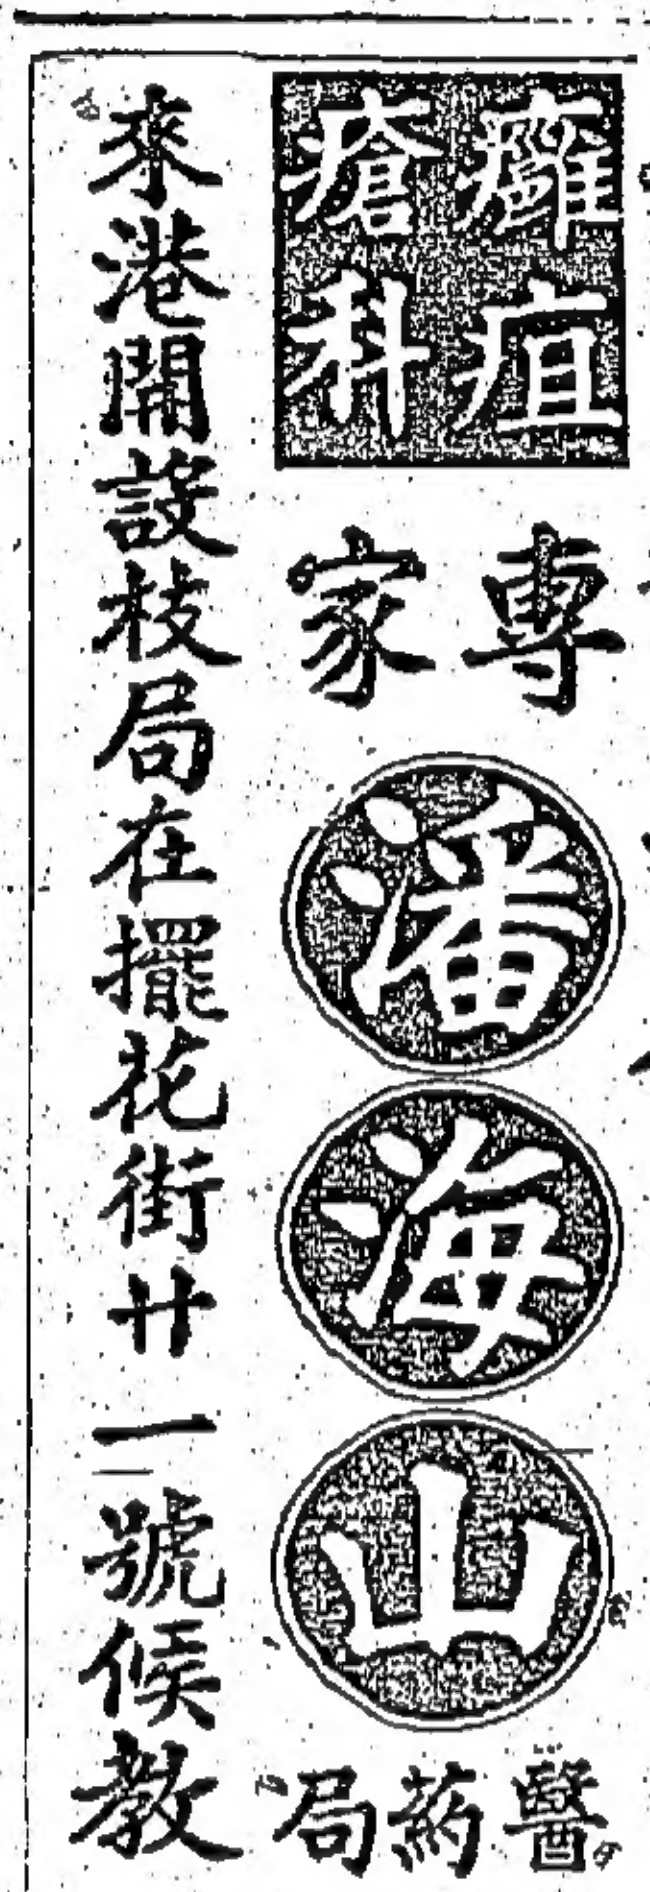 癰疽
瘡科
專家
潘海山
醫葯局
來港開設枝局在擺花街廿一號候教